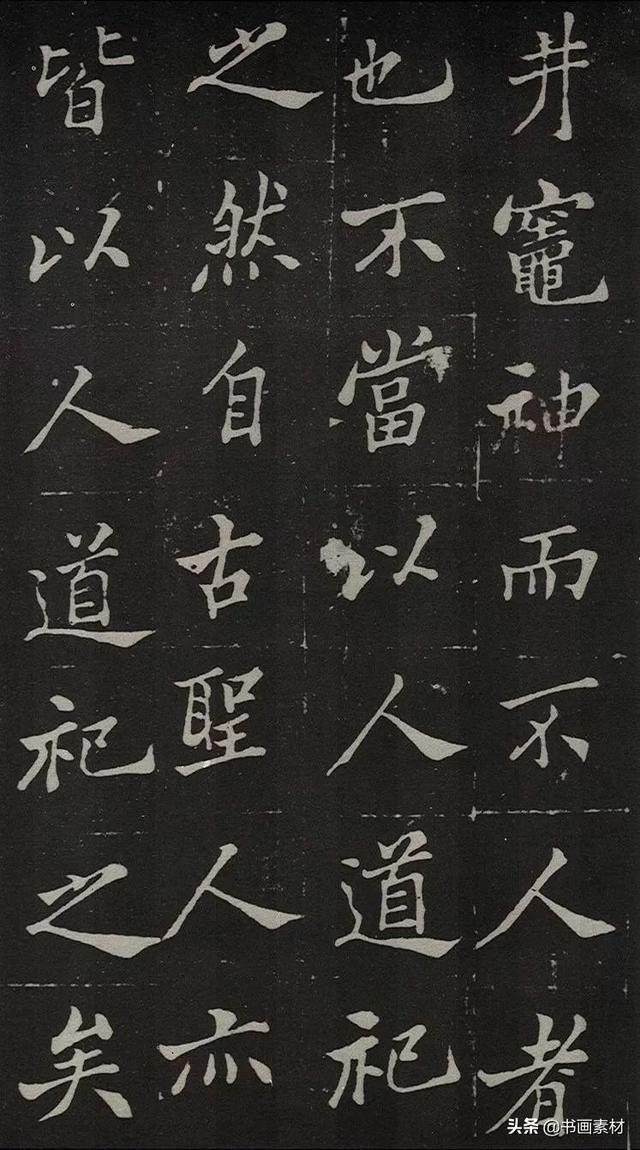 井竈神而不人者
也不當以人道祀
之然自古聖人亦
皆以人道祀之矣
头条 @书画素材